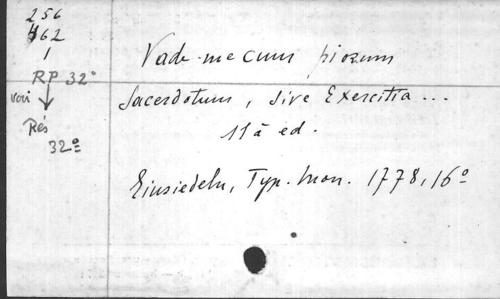 256
462
1
RP 32°
vori
Rés
32°
Vade-mecum piorum
Sacerdotum, sive Exercitia...
11a ed.
Einsiedeln, Typ. Mon. 1778, 16°